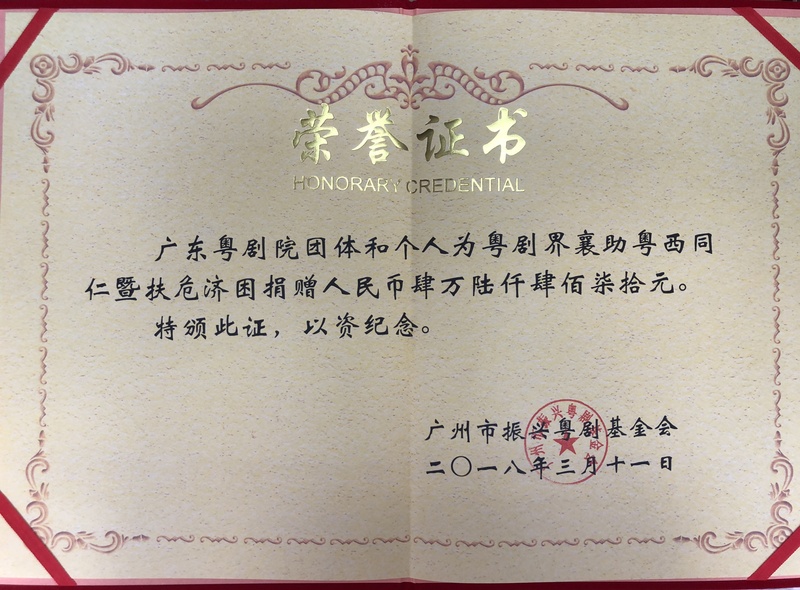 荣誉证书
HONORARY CREDENTIAL
广东粤剧院团体和个人为粤剧界襄助粤西同
仁暨扶危济困捐赠人民币肆万陆仟肆佰柒拾元。
特颁此证，以资纪念。
广州市振兴粤剧基金会
二〇一八年三月十一日